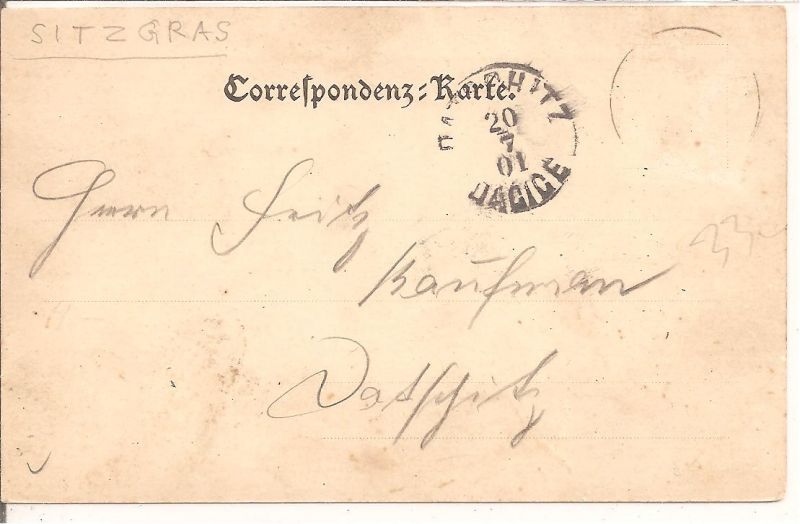 SITZGRAS
Correspondenz-Karte.
DATSCHITZ
20
7
01
DAČICE
Herrn Fritz
Kaufman
Datschitz